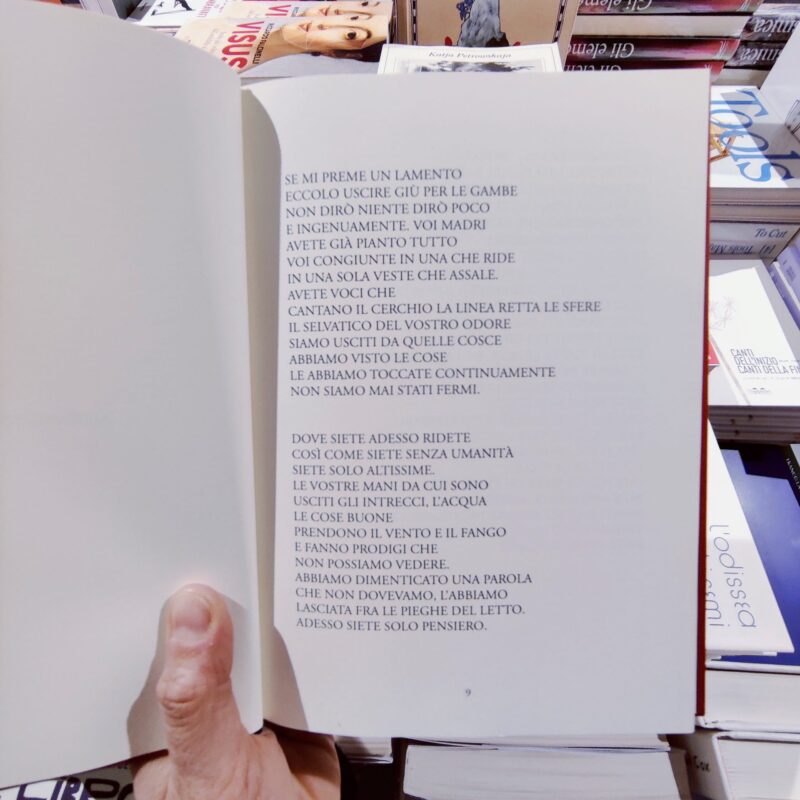 VISUS
Katja Petrowskaja
Gli eleme
Gli eleme
SE MI PREME UN LAMENTO
ECCOLO USCIRE GIÙ PER LE GAMBE
NON DIRÒ NIENTE DIRÒ POCO
E INGENUAMENTE. VOI MADRI
AVETE GIÀ PIANTO TUTTO
VOI CONGIUNTE IN UNA CHE RIDE
IN UNA SOLA VESTE CHE ASSALE.
AVETE VOCI CHE
CANTANO IL CERCHIO LA LINEA RETTA LE SFERE
IL SELVATICO DEL VOSTRO ODORE
SIAMO USCITI DA QUELLE COSCE
ABBIAMO VISTO LE COSE
LE ABBIAMO TOCCATE CONTINUAMENTE
NON SIAMO MAI STATI FERMI.
DOVE SIETE ADESSO RIDETE
COSÌ COME SIETE SENZA UMANITÀ
SIETE SOLO ALTISSIME.
LE VOSTRE MANI DA CUI SONO
USCITI GLI INTRECCI, L'ACQUA
LE COSE BUONE
PRENDONO IL VENTO E IL FANGO
E FANNO PRODIGI CHE
NON POSSIAMO VEDERE.
ABBIAMO DIMENTICATO UNA PAROLA
CHE NON DOVEVAMO, L'ABBIAMO
LASCIATA FRA LE PIEGHE DEL LETTO.
ADESSO SIETE SOLO PENSIERO.
9
Tools
To Cut
[4] Tools
CANTI
DELL'INIZIO
CANTI DELLA FIN
L'odissea